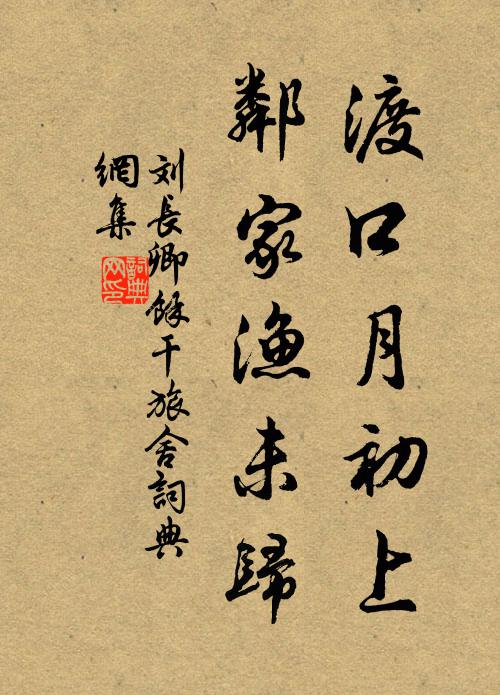 渡口月初上
鄰家漁未歸
刘長卿餘干旅舍詞典
網集
詞典
网印